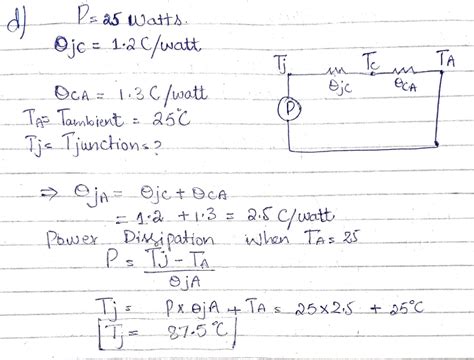 d) P = 25 Watts.
θjc = 1.2 C/watt
θCA = 1.3 C/watt
TA = Tambient = 25°C
Tj = Tjunction = ?
Tj Tc TA
θjc θCA
P
⇒ θjA = θjc + θCA
= 1.2 + 1.3 = 2.5 C/watt
Power Dissipation when TA = 25
P = Tj - TA
θjA
Tj = P x θjA + TA = 25 x 2.5 + 25°C
[Tj = 87.5°C]